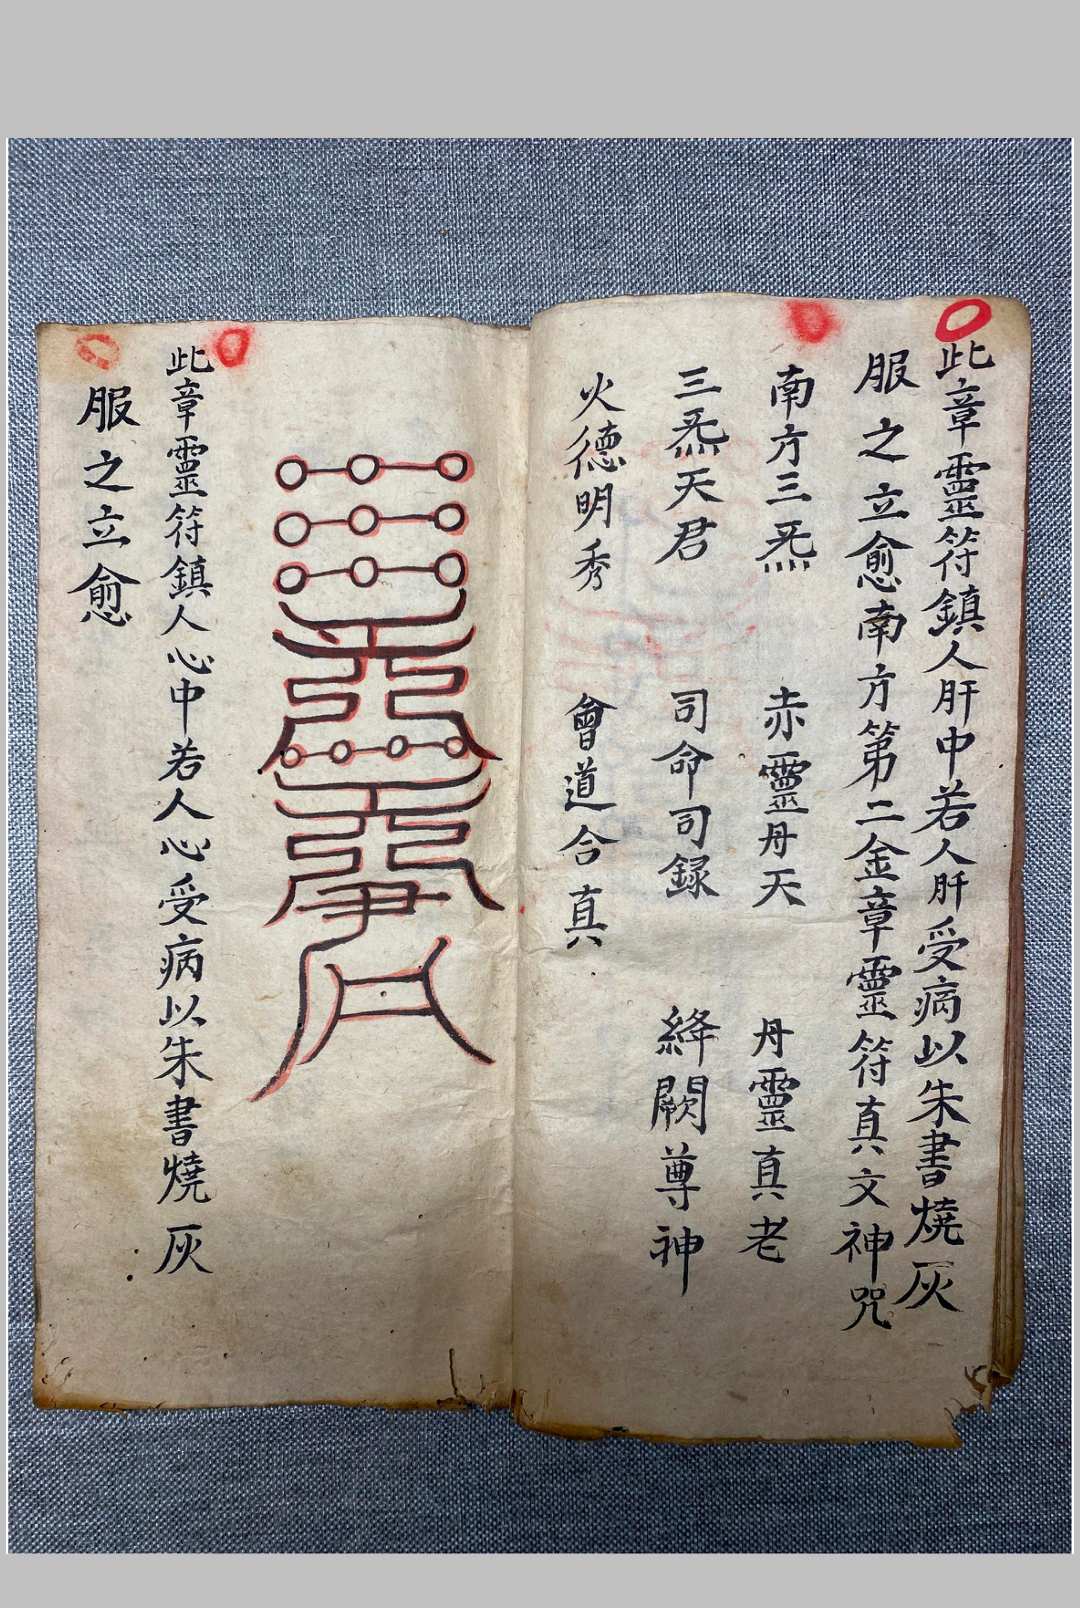 此章靈符鎮人肝中若人肝受病以朱書燒灰
服之立愈南方第二金章靈符真文神咒
南方三炁 赤靈丹天 丹靈真老
三炁天君 司命司錄 絳闕尊神
火德明秀 會道合真
此章靈符鎮人心中若人心受病以朱書燒灰
服之立愈